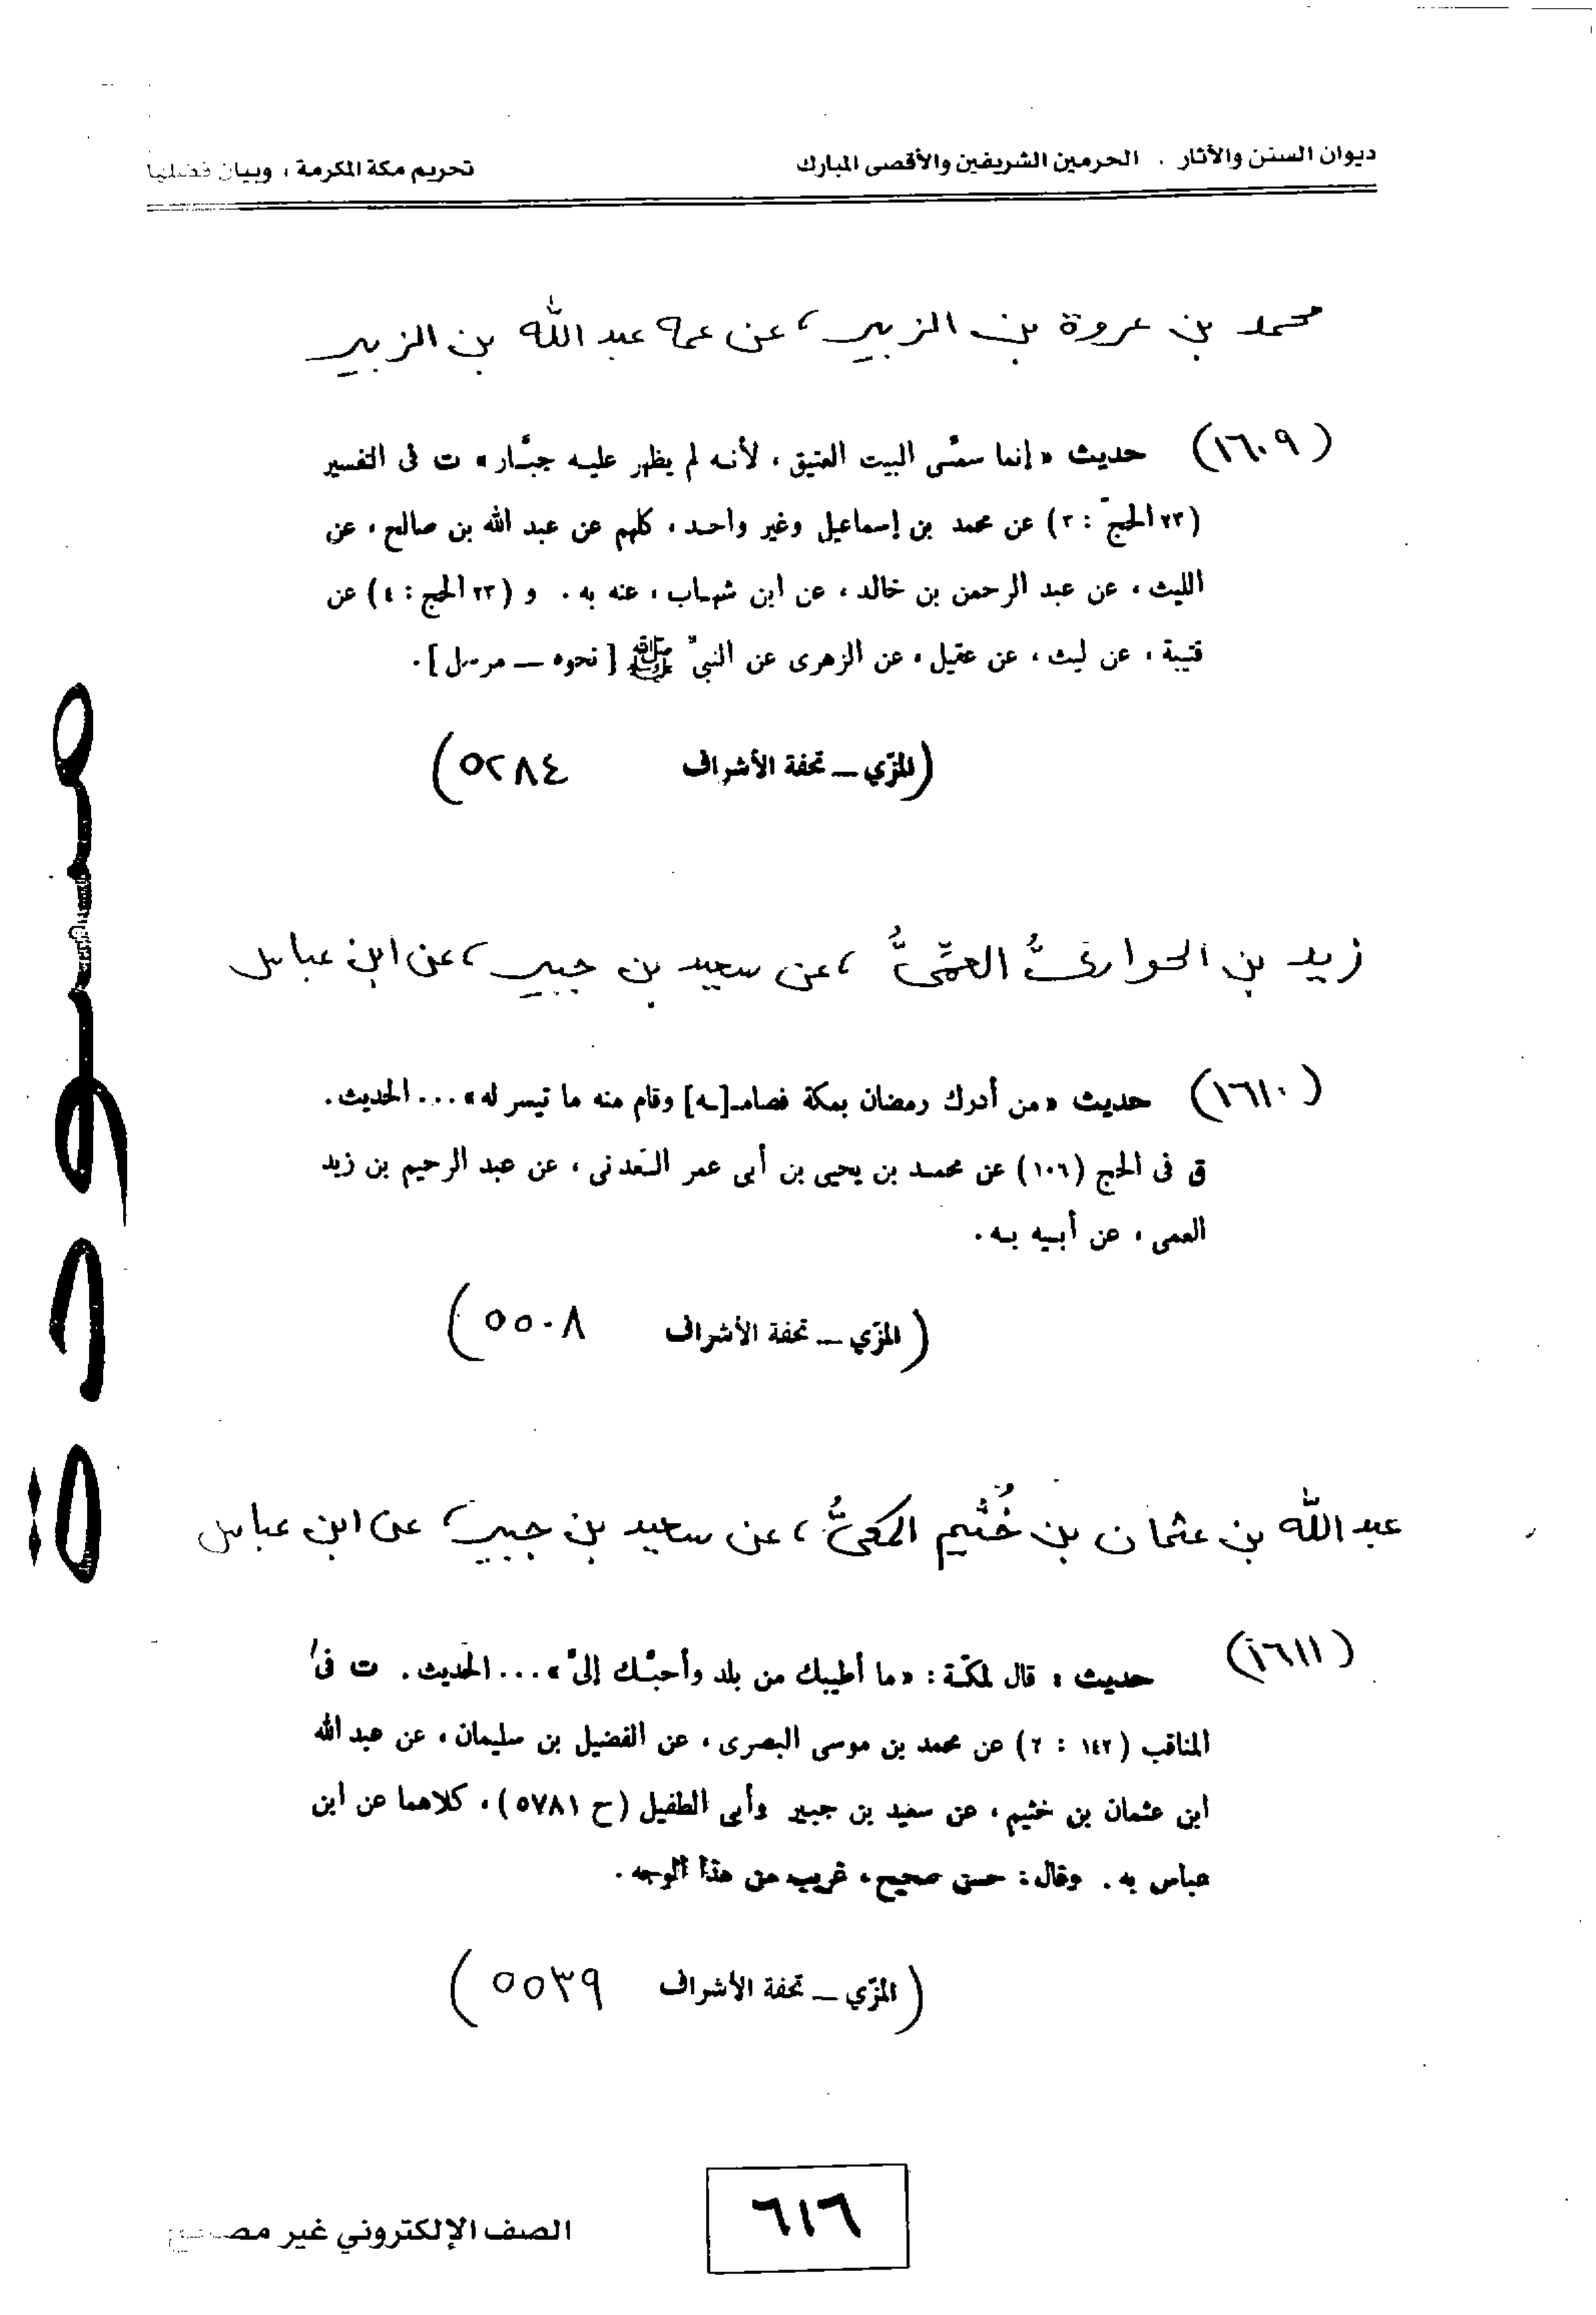 ديوان السنن والآثار . الحرمين الشريفين والأقصى المبارك
تحريم مكة المكرمة ، وبيان فضلها
محمد بن عروة بن الزبير ، عن عمه عبد الله بن الزبير
(١٦٠٩) حديث «إنما سمّى البيت العتيق ، لأنه لم يظهر عليه جبّار» ت فى التفسير
(٢٣ الحجّ : ٣) عن محمد بن إسماعيل وغير واحد ، كلهم عن عبد الله بن صالح ، عن
الليث ، عن عبد الرحمن بن خالد ، عن ابن شهاب ، عنه به . و (٢٣ الحج : ٤) عن
قتيبة ، عن ليث ، عن عقيل ، عن الزهرى عن النبىّ ﷺ [نحوه — مرسل] .
(المزّي — تحفة الأشراف ٥٢٨٤)
زيد بن الحوارىُّ العمِّىُّ ، عن سعيد بن جبير ، عن ابن عباس
(١٦١٠) حديث «من أدرك رمضان بمكة فصامـ[ـه] وقام منه ما تيسر له» ... الحديث .
ق فى الحج (١٠٦) عن محمد بن يحيى بن أبى عمر العَدنى ، عن عبد الرحيم بن زيد
العمى ، عن أبيه به .
(المزّي — تحفة الأشراف ٥٥٠٨)
عبد الله بن عثمان بن خُثَيم المكىُّ ، عن سعيد بن جبير ، عن ابن عباس
(١٦١١) حديث : قال لمكّة : «ما أطيبك من بلد وأحبّك إلىّ» ... الحديث . ت فى
المناقب (١٤٢ : ٢) عن محمد بن موسى البصرى ، عن الفضيل بن سليمان ، عن عبد الله
ابن عثمان بن خثيم ، عن سعيد بن جبير وأبى الطفيل (ح ٥٧٨١) ، كلاهما عن ابن
عباس به . وقال : حسن صحيح ، غريب من هذا الوجه .
(المزّي — تحفة الأشراف ٥٥٣٩)
مسودة
٦١٦
الصف الإلكتروني غير مصحح